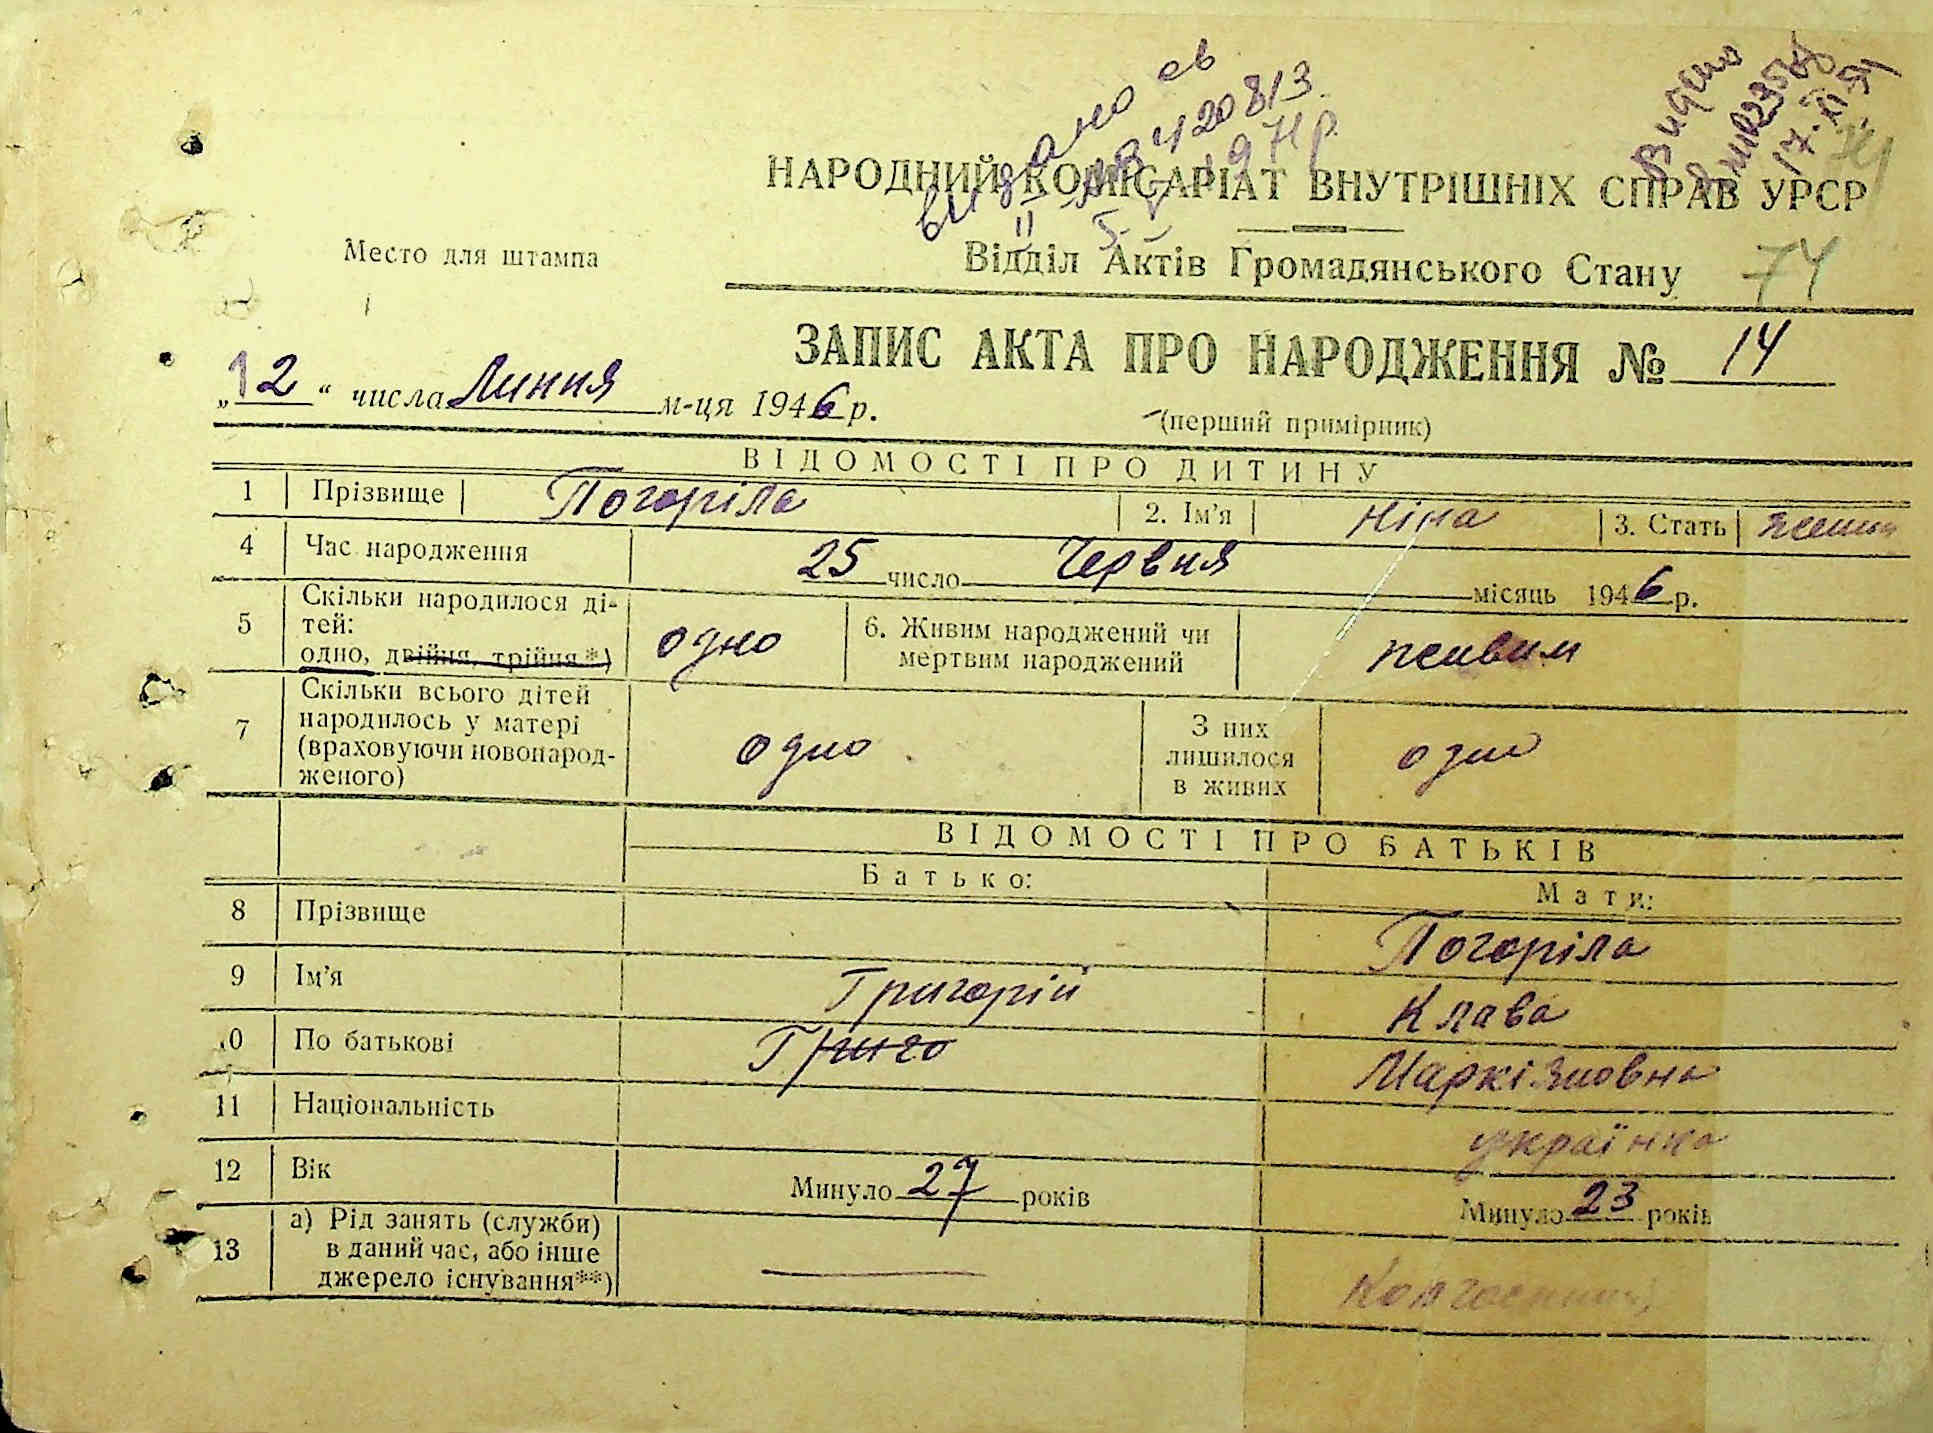 видано св
II № 420813
5 V 1971р.
Видано
17. XI 54
НАРОДНИЙ КОМІСАРІАТ ВНУТРІШНІХ СПРАВ УРСР
Место для штампа
Відділ Актів Громадянського Стану 74
ЗАПИС АКТА ПРО НАРОДЖЕННЯ № 14
„12“ числа Липня м-ця 1946 р.
(перший примірник)
ВІДОМОСТІ ПРО ДИТИНУ
1 Прізвище Погоріла 2. Ім'я Ніна 3. Стать
4 Час народження 25 число Червня місяць 1946 р.
5 Скільки народилося ді-
тей:
одно, двійня, трійня*) одно 6. Живим народжений чи
мертвим народжений живим
7 Скільки всього дітей
народилось у матері
(враховуючи новонарод-
женого) одно З них
лишилося
в живих одно
ВІДОМОСТІ ПРО БАТЬКІВ
Батько: Мати:
8 Прізвище Погоріла
9 Ім'я Григорій Клава
10 По батькові Григо Маркіяновна
11 Національність українка
12 Вік Минуло 27 років Минуло 23 років
13 а) Рід занять (служби)
в даний час, або інше
джерело існування**)